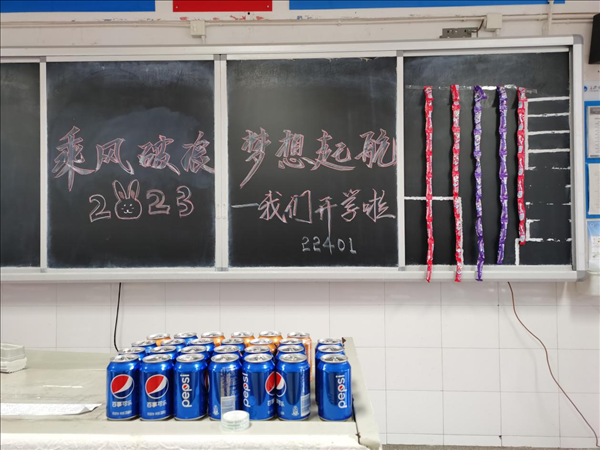 乘风破浪
2023
梦想起航
—我们开学啦
22401
pepsi
pepsi
pepsi
pepsi
百事可乐
百事可乐